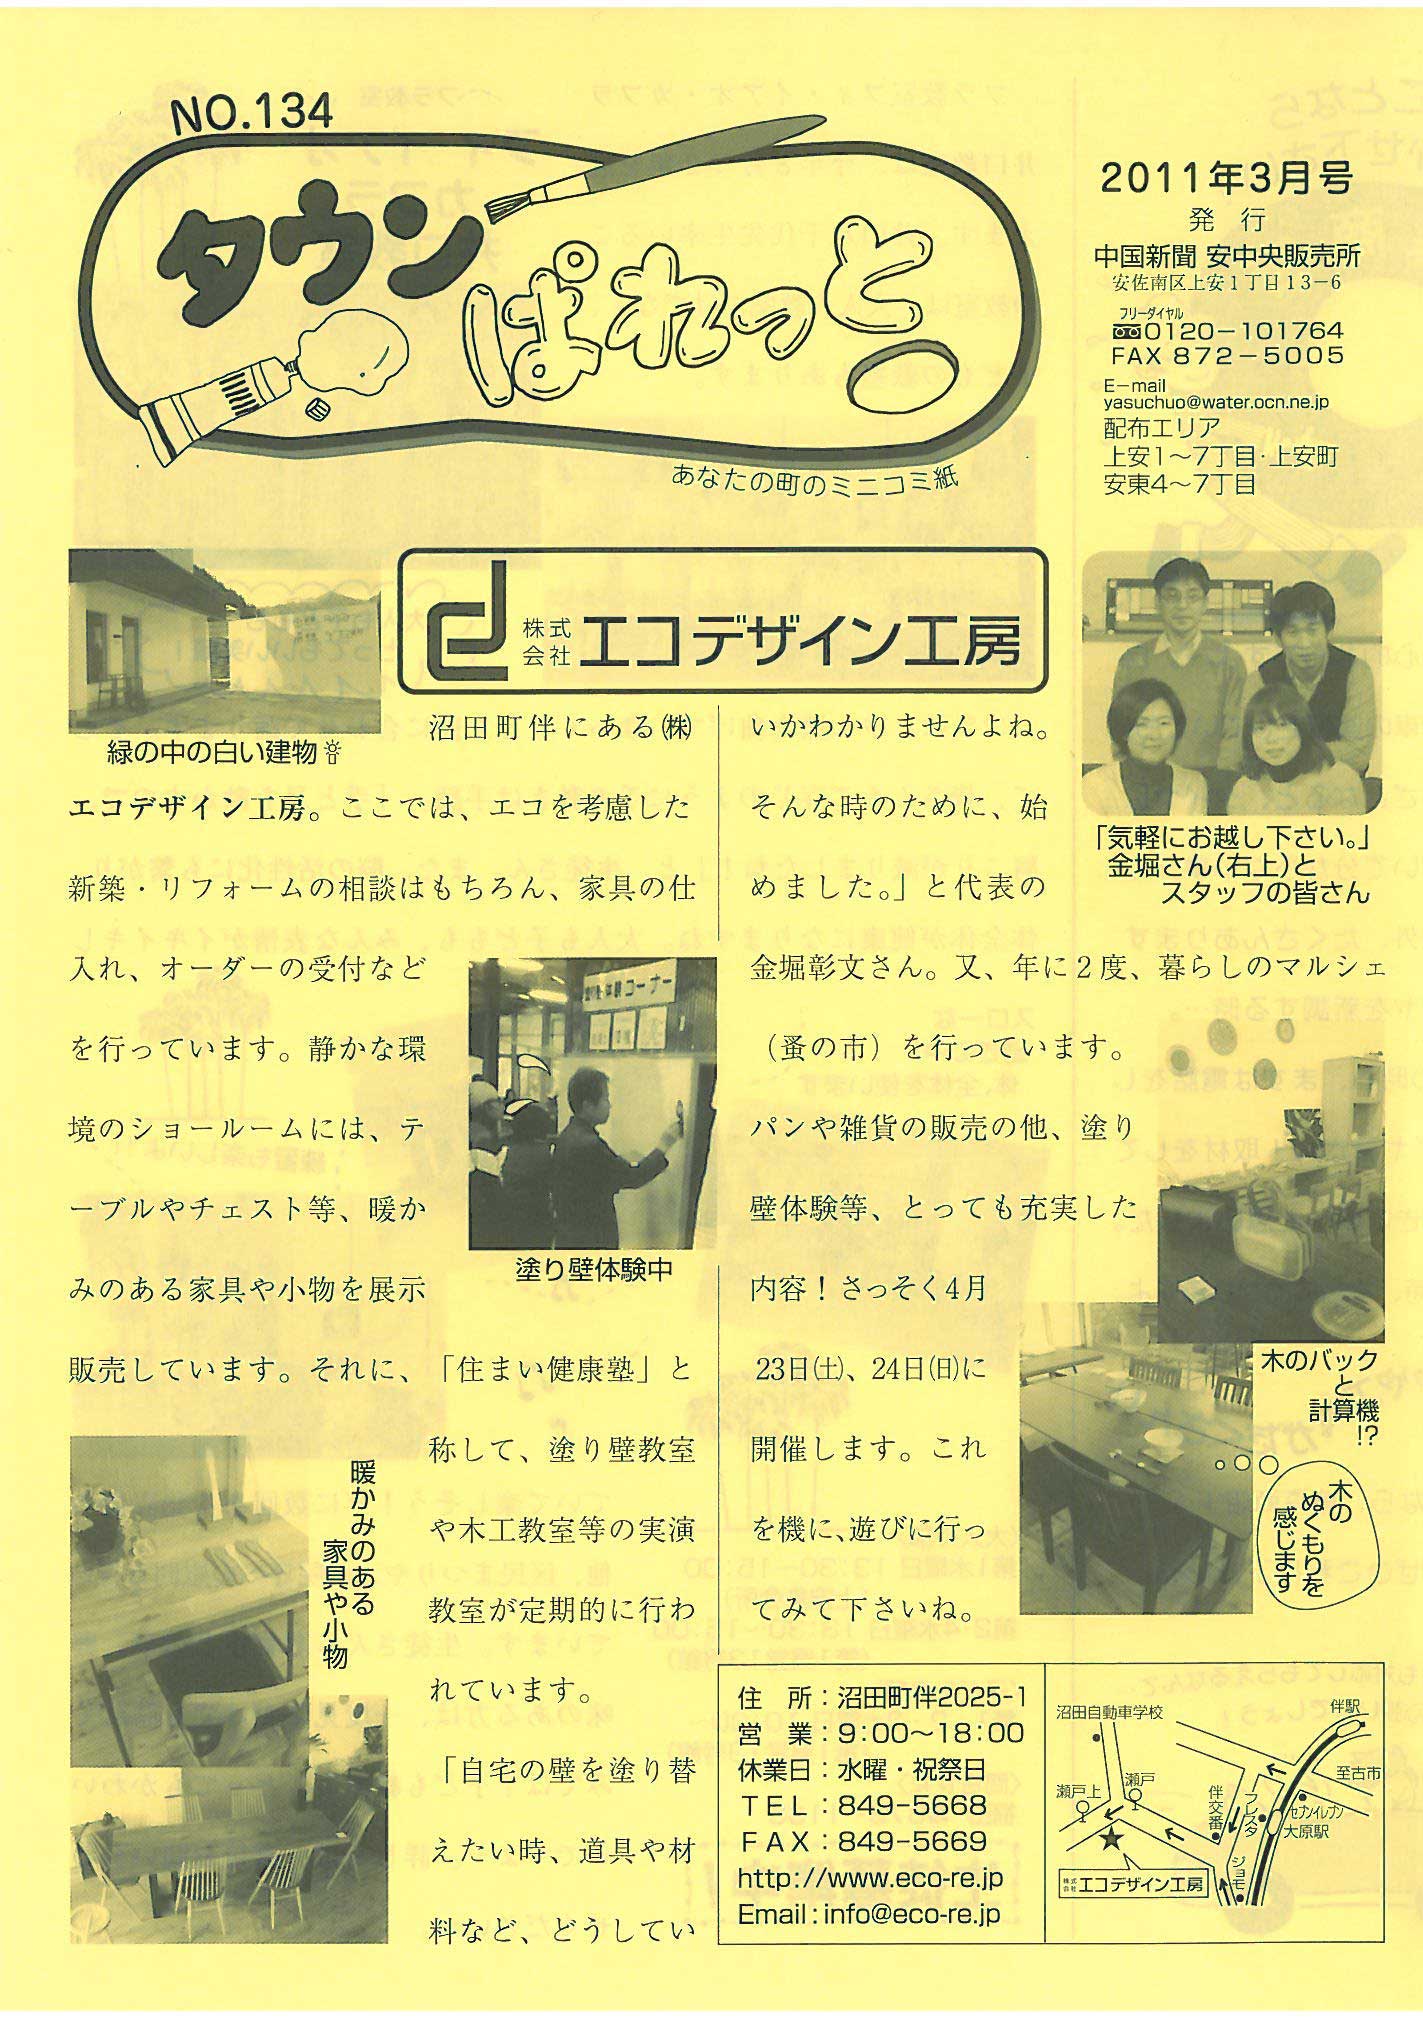 NO.134
タウン
ぱれっと
あなたの町のミニコミ紙
2011年3月号
発 行
中国新聞 安中央販売所
安佐南区上安1丁目13−6
フリーダイヤル
0120−101764
FAX 872−5005
E−mail
yasuchuo@water.ocn.ne.jp
配布エリア
上安1〜7丁目・上安町
安東4〜7丁目
株式会社 エコデザイン工房
緑の中の白い建物
沼田町伴にある㈱
エコデザイン工房。ここでは、エコを考慮した
新築・リフォームの相談はもちろん、家具の仕
入れ、オーダーの受付など
を行っています。静かな環
境のショールームには、テ
ーブルやチェスト等、暖か
みのある家具や小物を展示
販売しています。それに、「住まい健康塾」と
称して、塗り壁教室
や木工教室等の実演
教室が定期的に行わ
れています。
「自宅の壁を塗り替
えたい時、道具や材
料など、どうしてい
塗り壁体験中
暖かみのある
家具や小物
いかわかりませんよね。
そんな時のために、始
めました。」と代表の
金堀彰文さん。又、年に2度、暮らしのマルシェ
(蚤の市)を行っています。
パンや雑貨の販売の他、塗り
壁体験等、とっても充実した
内容！さっそく4月
23日㈯、24日㈰に
開催します。これ
を機に、遊びに行っ
てみて下さいね。
「気軽にお越し下さい。」
金堀さん(右上)と
スタッフの皆さん
木のバック
と
計算機
!?
木の
ぬくもりを
感じます
住 所：沼田町伴2025-1
営 業：9:00〜18:00
休業日：水曜・祝祭日
TEL：849−5668
FAX：849−5669
http://www.eco-re.jp
Email:info@eco-re.jp
沼田自動車学校
伴駅
瀬戸上
瀬戸
伴交番
フレスタ
至古市
セブンイレブン
大原駅
ジョモ
株式会社 エコデザイン工房